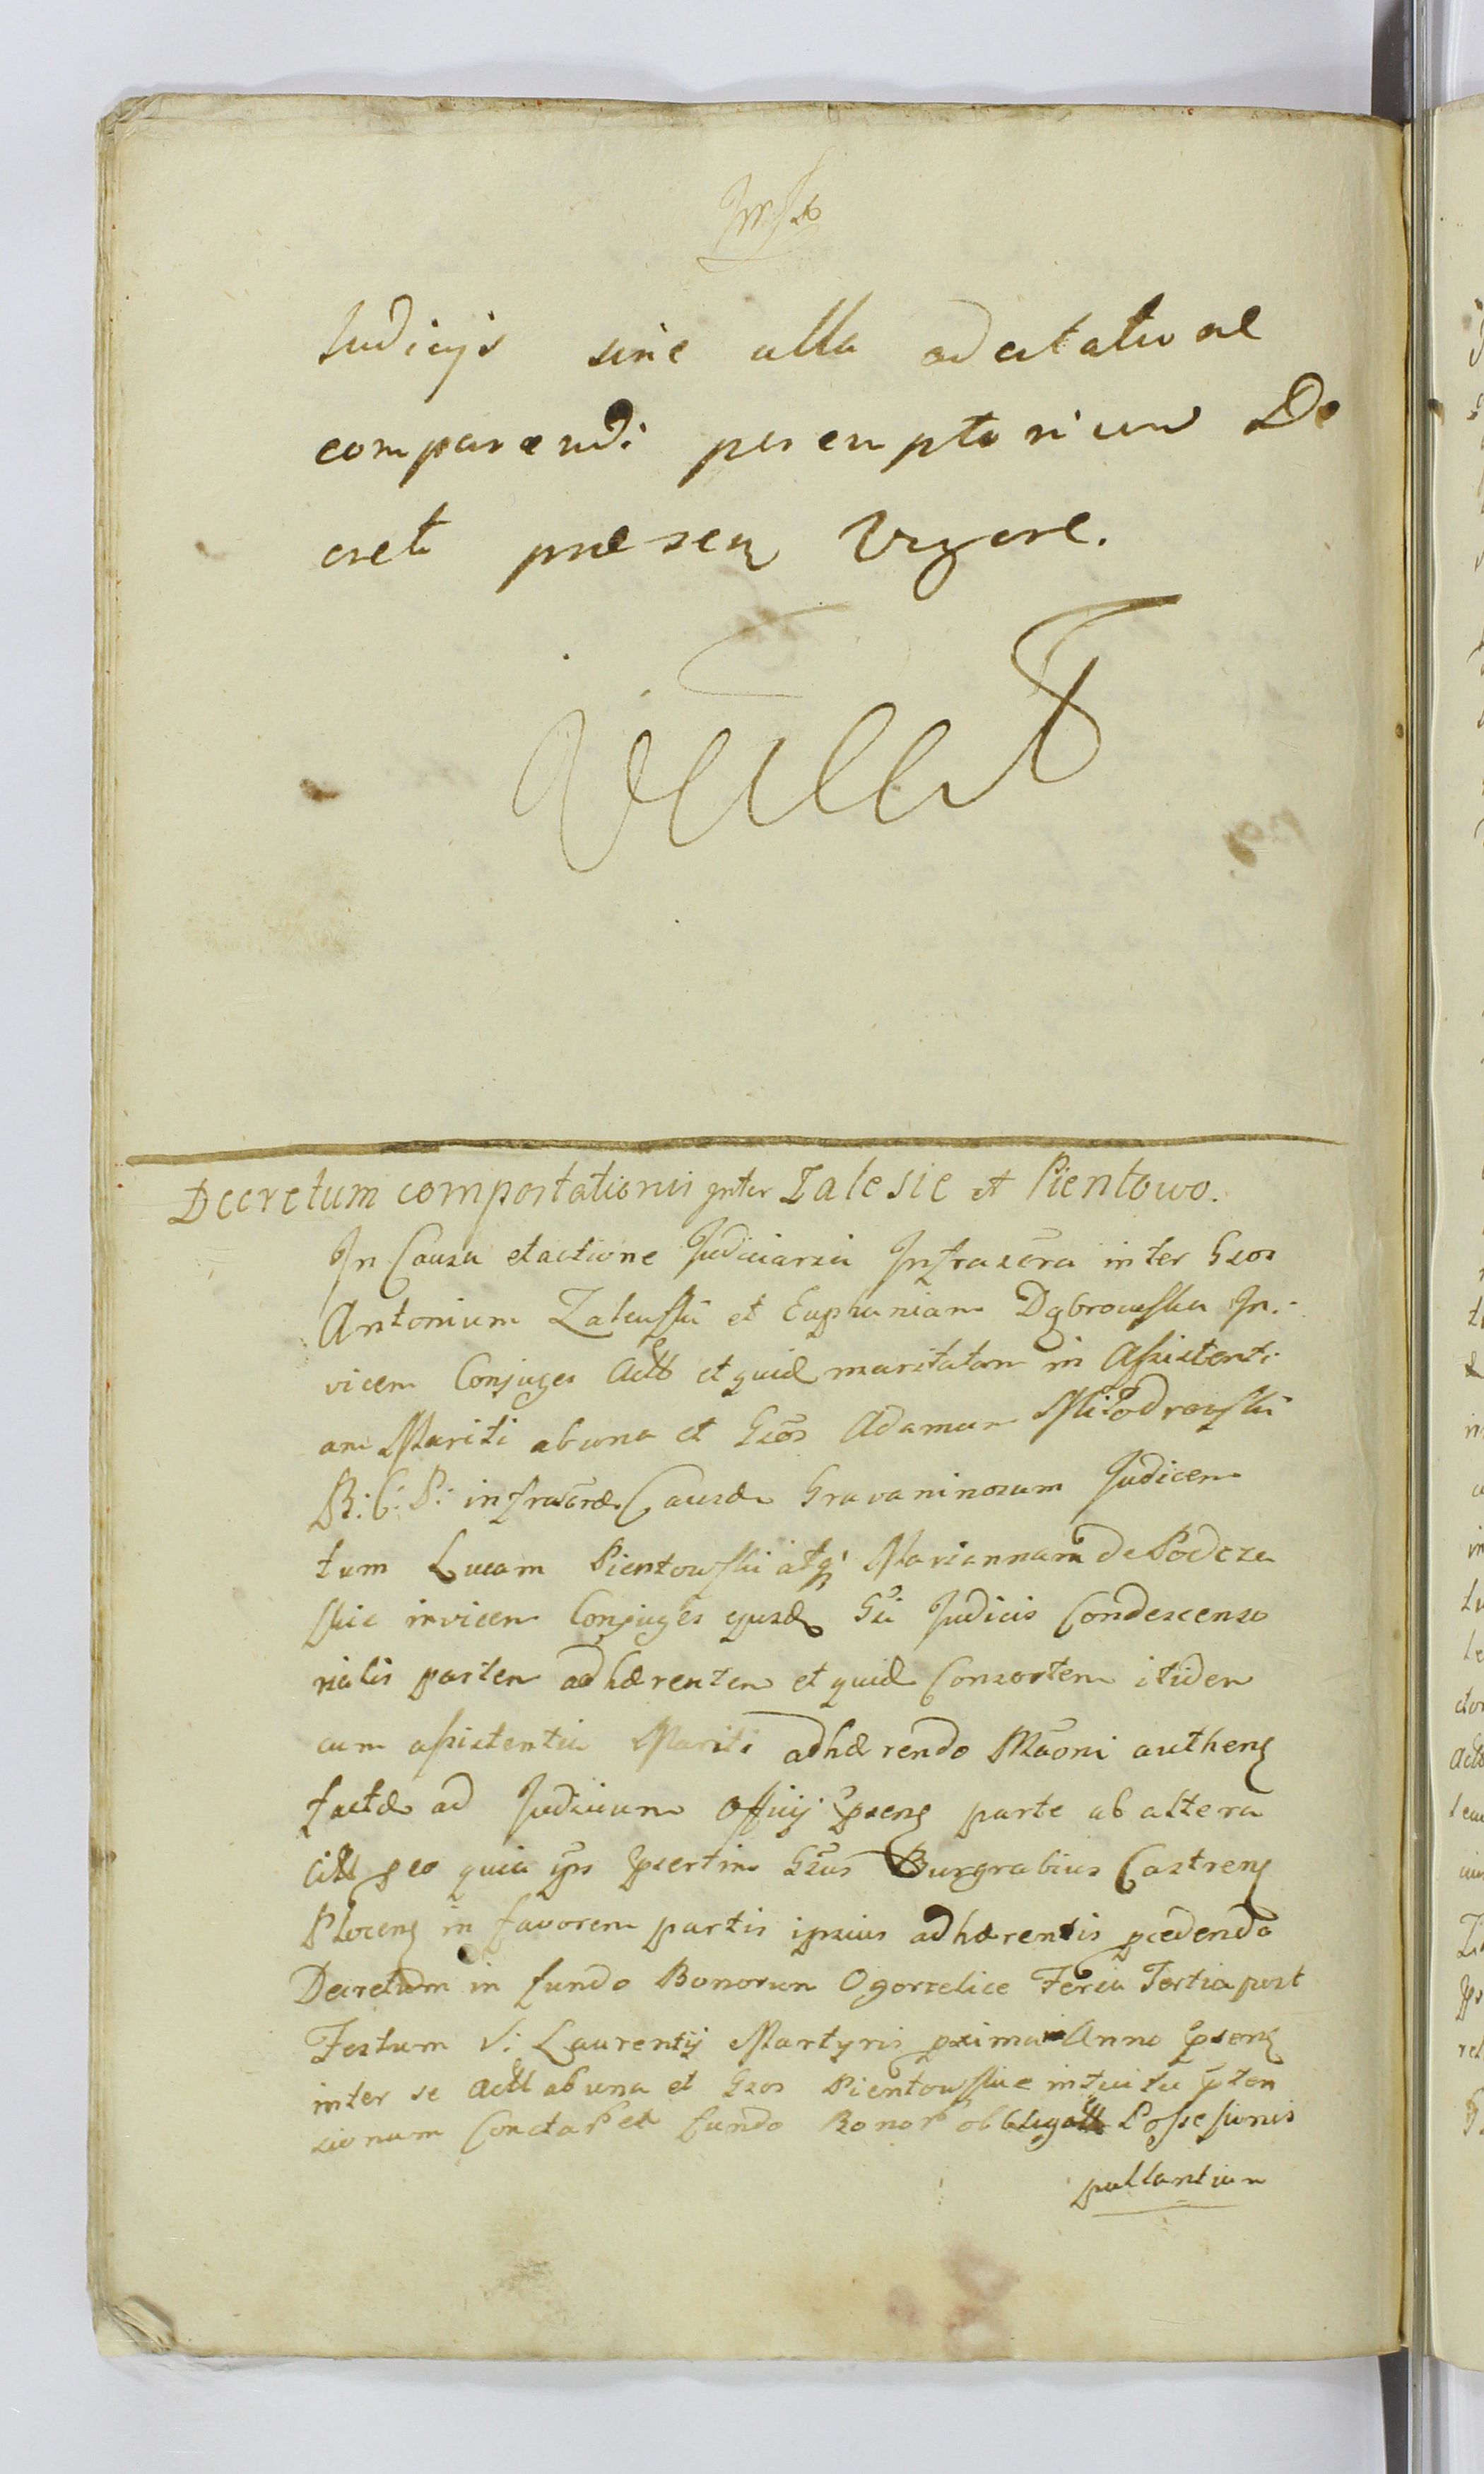 Judicijs sine ulla adcitatione
comparendi peremptorium De
creti præsen vigore.
Decretum compostationis inter Zalesie et Pientowo.
In Causa et actione Judiciaria Infrascra inter Gsos
Antonium Zaleuski et Euphemiam Dąbrowska In-
vicem Conjuges Actt et quid maritatam in Assistenti
am Mariti ab una et Gsos Adamum Młodrowski
B: C: P: infrascræ Causæ Gravaminosum Judicem
tum Lucam Pientowski atq Mariannam de Podcza
skie invicem Conjuges ejusd Gsi Judicis Condescenso
rialis partem adhærentem et quid Consortem itidem
cum assistentia Mariti adhærendo Mãoni authen
factæ ad Judicium Officij psen parte ab altera
Citt eo quia ips psertim Gsus Burgrabius Castren
Plocen in favorem partis ipsius adhærentis pcedendo
Decretum in fundo Bonorum Ogorzelice Feria Tertia post
Festum S: Laurentij Martyris pxima Anno psen
inter se Actt ab una et Gsos Pientowskie intuitu pten
sionum Conctar et fundo Bonor obligatt Possessionis
pullantium